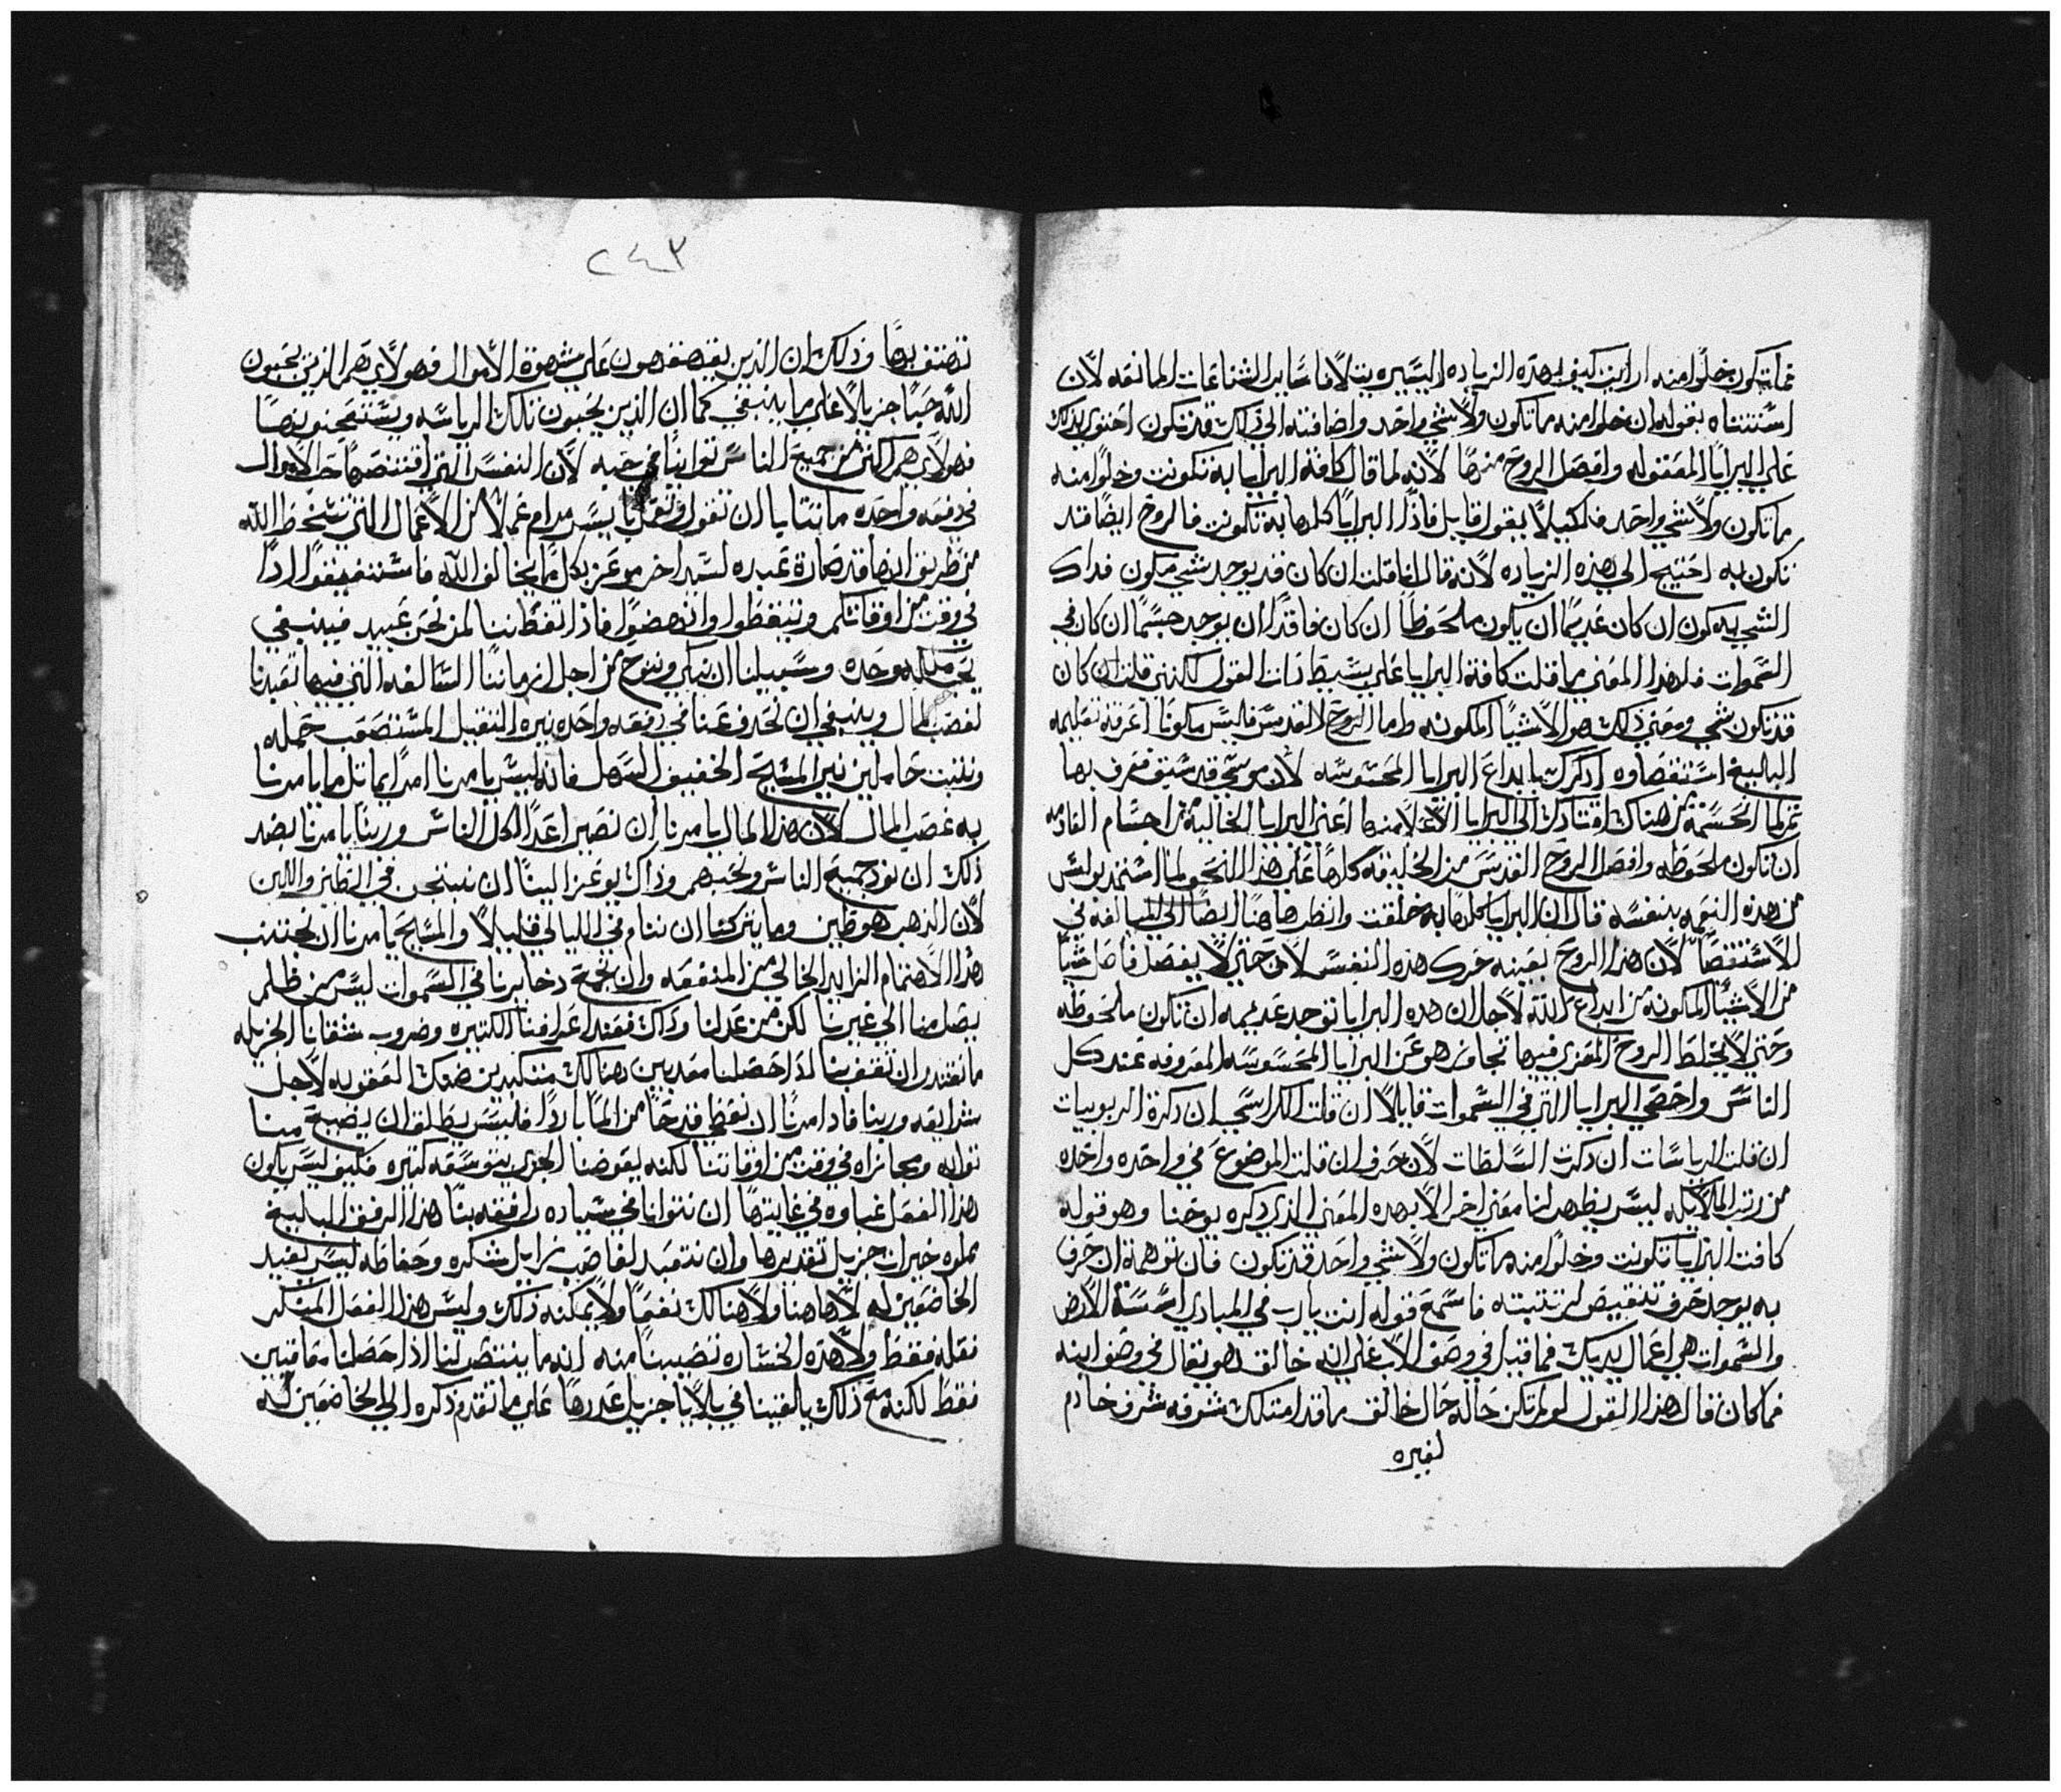 فما يكون خلوا منه ارايت كيف بهذه الزياده اليسيره يتلافا ساير الشناعات المانعه لان
استتناه بقوله ان خلوا منه ما تكون ولا شي واحد واضافته الي ذلك قد تكون احتوي بذلك
علي البرايا المعقوله وافصل الروح منها لانه لما قال كافة البرايا به تكونت وخلوا منه
ما تكون ولا شي واحد فلكيلا يقول قايل فاذا البرايا كلها به تكونت فالروح ايضا قد
تكون به احتيج الي هذه الزياده لانه قال انا قلت ان كان قد يوجد شي مكون فداك
الشي به كون ان كان عديما ان يكون ملحوظا ان كان فاقدا ان يوجد جسما ان كان في
السموات فلهدا المعني ما قلت كافة البرايا علي بسيط ذات القول لكنني قلت ان كان
قد تكون شي ومعني ذلك هو الاشيا المكونه واما الروح القدس فليس مكونا اعرفه تعليمه
البليغ استقصاوه اذكرك بابداع البرايا المحسوسه لان موسي قد سبق فعرف بها
تم لما الحسمه من هناك اقتادك الي البرايا الاعلا منها اعني البرايا الخاليه من اجسام الفاقده
ان تكون ملحوظه وافصل الروح القدس من الخليقه كلها علي هذا النحو لما استمد بولس
من هذه النعمه بنفسه قال ان البرايا كلها به خلقت وانظرها هنا ايضا الي المبالغه في
الاستقصا لان هذا الروح بعينه حرك هذه النفس لان حتي لا يفصل فاصل شيا
من الاشيا المكونه من ابداع الله لاجل ان هده البرايا توجد عديمه ان تكون ملحوظه
وحتي لا يختلط الروح المعزي فيها تجاوز هو عن البرايا المحسوسه المعروفه عند كل
الناس واحصي البرايا التي في السموات قايلا ان قلت الكراسي ان ذكرة الربوبيات
ان قلت الرياسات ان ذكرت السلطات لان حرف ان قلت الموضوع في واحده واحده
من رتب الملايكه ليس يظهر لنا معني اخر الا بهده المعني الذي ذكره يوحنا وهو قوله
كافت البرايا تكونت وخلوا منه ما تكون ولا شي واحد قد تكون فان توهمة ان حرف
به يوجد حرف تنقيص لرتبته فاسمع قوله انت يارب في المبادي اسسة الارض
والسموات هي اعمال يديك فما قيل في وصف الاب علي انه خالق فهو يقال في وصف ابنه
فما كان قال هذا القول لو لم تكن حاله حال خالق ما قد امتلك شرفه شرف خادم
لغيره
٢٤٣
نهتف بها وذلك ان الذين يقهقهون علي شهوة الاموال فهولاي هم الذين يحبون
الله حبا جزيلا علي ما ينبغي كما ان الذين يحبون تلك الرياسه ويستفتحونها
فهولاي هم اكثر من جميع الناس توانيا في حبه لان النفس التي اقتنصها حب الاموال
في دفعه واحده ما تتايا ان تقول وتعمل بايسر مرام عملا من الاعمال التي تسخط الله
من طريق انها قد صارة عبده لسيد اخر موعز بكل ما يخالف الله فاستفيقوا اذا
في وقت من اوقاتكم وتيقظوا وانهضوا فاذا تفظننا لمن نحن عبيد فينبغي
نحب ملكه وحده وسبيلنا ان نبكي وننوح من اجل ازماننا السالفه التي فيها تعبدنا
لغصب المال وينبغي ان نحدف عنا في دفعه واحده نيره الثقيل المستصعب حمله
ونلبث حاملين نير المسيح الخفيف السهل فانه ليس يامرنا امرا يماثل ما يامرنا
به غصب المال لان هذا المال يامرنا ان نصير اعدا لكل الناس وربنا يامرنا بضد
ذلك ان نود جميع الناس ونحبهم وذاك يوعز الينا ان نبتجن في الطين واللبن
لان الذهب هو طين وما يتركنا ان ننام في الليالي قليلا والمسيح يامرنا ان نجتنب
هذا الاهتمام الزايد الخالي من المنفعه وان نجمع دخايرنا في السموات ليس من ظلم
يصل منا الي غيرنا لكن من عدلنا وذاك فعند اعراقنا الكثيره وضروب شقانا الجزيله
ما تقتدر ان تقف بنا اذا حصلنا معذبين هنالك متكبدين ضنك العقوبه لاجل
شرايعه وربنا فاذ امرنا ان نعطي قدحا من الما باردا فليس يطلق ان يضيع منا
ثوابه ومجازاه في وقت من اوقاتنا لكنه يعوضنا الجزي بتوسعه كثيره فكيف ليس يكون
هذا الفعل غباوه في غايتها ان نتوانا في سياده رافقه بنا هذا الرفق البليغ
مملوه خيرات جزيل تقديرها وان نتعبد لغاصب زايل شكره وحفاظه ليس يفيد
الخاضعين له لا هاهنا ولا هنالك نفعا ولا يمكنه ذلك وليس هذا الفعل المنكر
نفعله فقط ولا هذه الخساره تصيبنا منه انه ما ينتصر لنا اذا حصلنا معاقبين
فقط لكنه مع ذلك يلقينا في بلايا جزيل عددها علي ما تقدم ذكره الي الخاضعين له